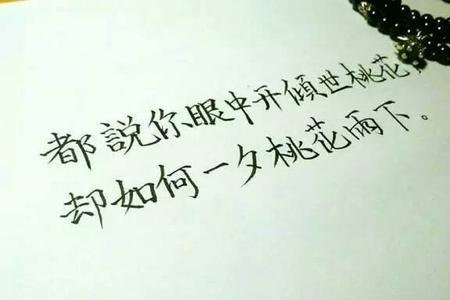 都說你眼中开傾世桃花，
却如何一夕桃花雨下。